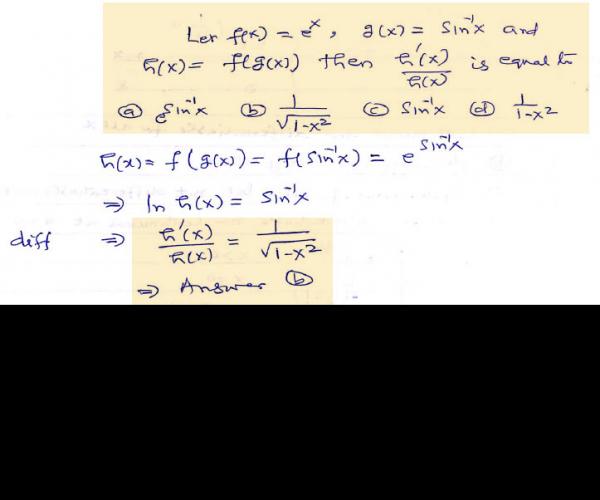 Let f(x) = e^x, g(x) = sin⁻¹x and
h(x) = f(g(x)) then h'(x)/h(x) is equal to
(a) e^sin⁻¹x (b) 1/√(1-x²) (c) sin⁻¹x (d) 1/(1-x²)
h(x) = f(g(x)) = f(sin⁻¹x) = e^sin⁻¹x
⇒ ln h(x) = sin⁻¹x
diff ⇒ h'(x)/h(x) = 1/√(1-x²)
⇒ Answer (b)